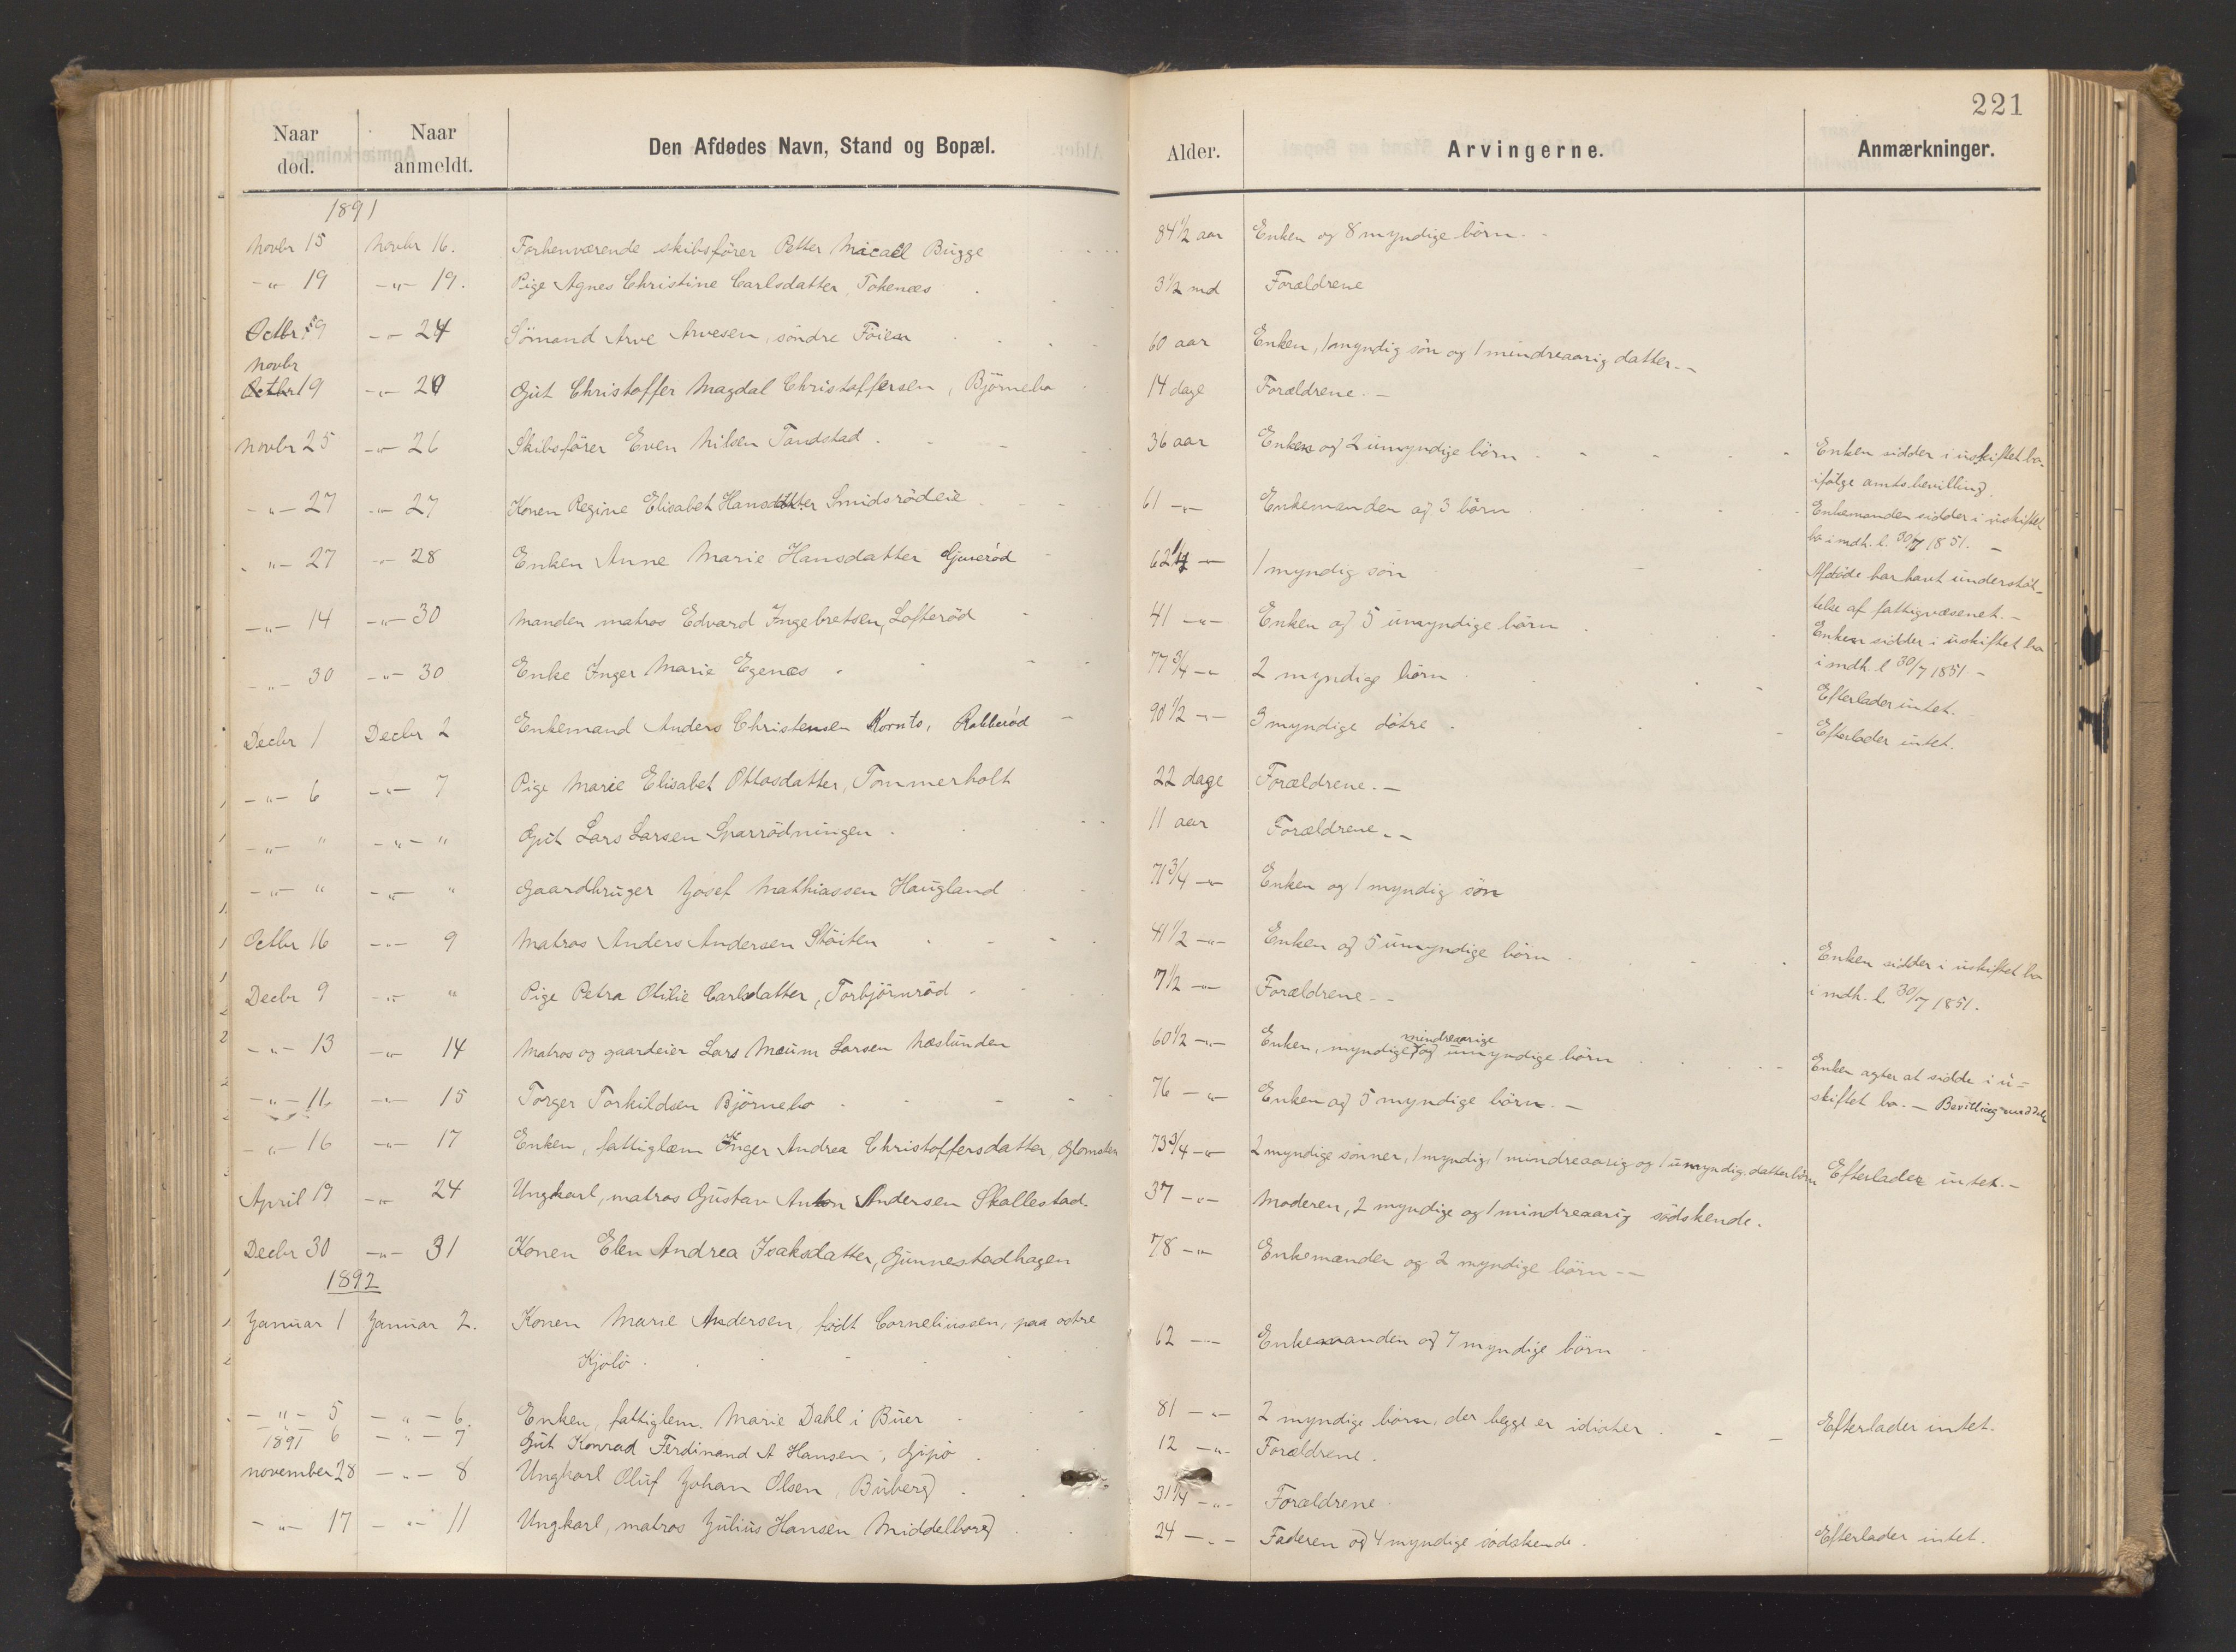 221
Naar død. Naar anmeldt. Den Afdødes Navn, Stand og Bopæl. Alder. Arvingerne. Anmærkninger.
1891
Novbr 15 Novbr 16. Forhenværende skibsfører Petter Micael Bugge 84 1/2 aar Enken og 8 myndige börn.
-"- 19 -"- 19. Pige Agnes Christine Carlsdatter, Tokenæs 3 1/2 md Forældrene
Octbr 19 -"- 24 Sömand Arve Arvesen, söndre Föien 60 aar Enken, 1 myndig sön og 1 mindreaarig datter. -
Novbr
Octbr 19 -"- 24 Gut Christoffer Magdal Christoffersen, Björnebo 14 dage Forældrene. -
Novbr 25 -"- 26 Skibsförer Even Nilsen Tandstad 36 aar Enken og 2 umyndige börn Enken sidder i uskiftet bo
ifölge amtsbevilling.
-"- 27 -"- 27 Konen Regine Elisabet Hansdatter Smidsrödeie 61 -"- Enkemanden og 3 börn Enkemanden sidder i uskiftet
bo i mdh. l. 30/7 1851. -
-"- 27 -"- 28 Enken Anne Marie Hansdatter Gjueröd 62 1/4 -"- 1 myndig sön Afdöde har havt understöt-
telse af fattigvæsenet. -
-"- 14 -"- 30 Manden matros Edvard Ingebretsen, Lofteröd 41 -"- Enken og 5 umyndige börn Enken sidder i uskiftet bo
i mdh. l 30/7 1851. -
-"- 30 -"- 30 Enke Inger Marie Egenæs 77 3/4 -"- 2 myndige börn Efterlader intet.
Decbr 1 Decbr 2 Enkemand Anders Christensen Kornts, Rabberöd 90 1/2 -"- 3 myndige dötre Efterlader intet.
-"- 6 -"- 7 Pige Marie Elisabet Ottosdatter, Tommerholt 22 dage Forældrene. -
-"- " -"- " Gut Lars Larsen Snarrödningen 11 aar Forældrene. -
-"- " -"- " Gaardbruger Josef Mathiassen Haugland 71 3/4 -"- Enken og 1 myndig sön
Octbr 16 -"- 9 Matros Anders Andersen Stöiten 41 1/2 -"- Enken og 5 umyndige börn Enken sidder i uskiftet bo
i mdh. l. 30/7 1851.
Decbr 9 -"- " Pige Petra Otilie Carlsdatter, Torbjörnröd 7 1/2 -"- Forældrene. -
-"- 13 -"- 14 Matros og gaardeier Lars Maum Larsen Næslunden 60 1/2 -"- Enken, myndige, mindreaarige og umyndige börn Enken agter at sidde i u-
skiftet bo. - Bevilling meddelt
-"- 11 -"- 15 Torger Torkildsen Björnebo 76 -"- Enken og 5 myndige börn. -
-"- 16 -"- 17 Enken, fattiglæm Inger Andrea Christoffersdatter, Glomsten 73 3/4 -"- 2 myndige sönner, 1 myndig, 1 mindreaarig og 1 umyndig datterbörn Efterlader intet. -
April 19 -"- 24 Ungkarl, matros Gustav Anton Andersen Skallestad. 37 -"- Moderen, 2 myndige og 1 mindreaarig södskende.
Decbr 30 -"- 31 Konen Elen Andrea Isaksdatter, Gunnestadhagen 78 -"- Enkemanden og 2 myndige börn -
1892
Januar 1 Januar 2. Konen Marie Andersen, födt Corneliussen, paa östre
Kjölö 62 -"- Enkemanden og 7 myndige börn
-"- 5 -"- 6. Enken, fattiglem. Marie Dahl i Buer 81 -"- 2 myndige börn, der begge er idioter Efterlader intet.
-"- 6 -"- 7 Gut Konrad Ferdinand A Hansen, Gipö 12 -"- Forældrene.
1891
november 28 -"- 8 Ungkarl Oluf Johan Olsen, Buberg 31 1/4 -"- Forældrene.
-"- 17 -"- 11 Ungkarl, matros Julius Hansen Middelborg 24 -"- Faderen og 4 myndige södskende. Efterlader intet.